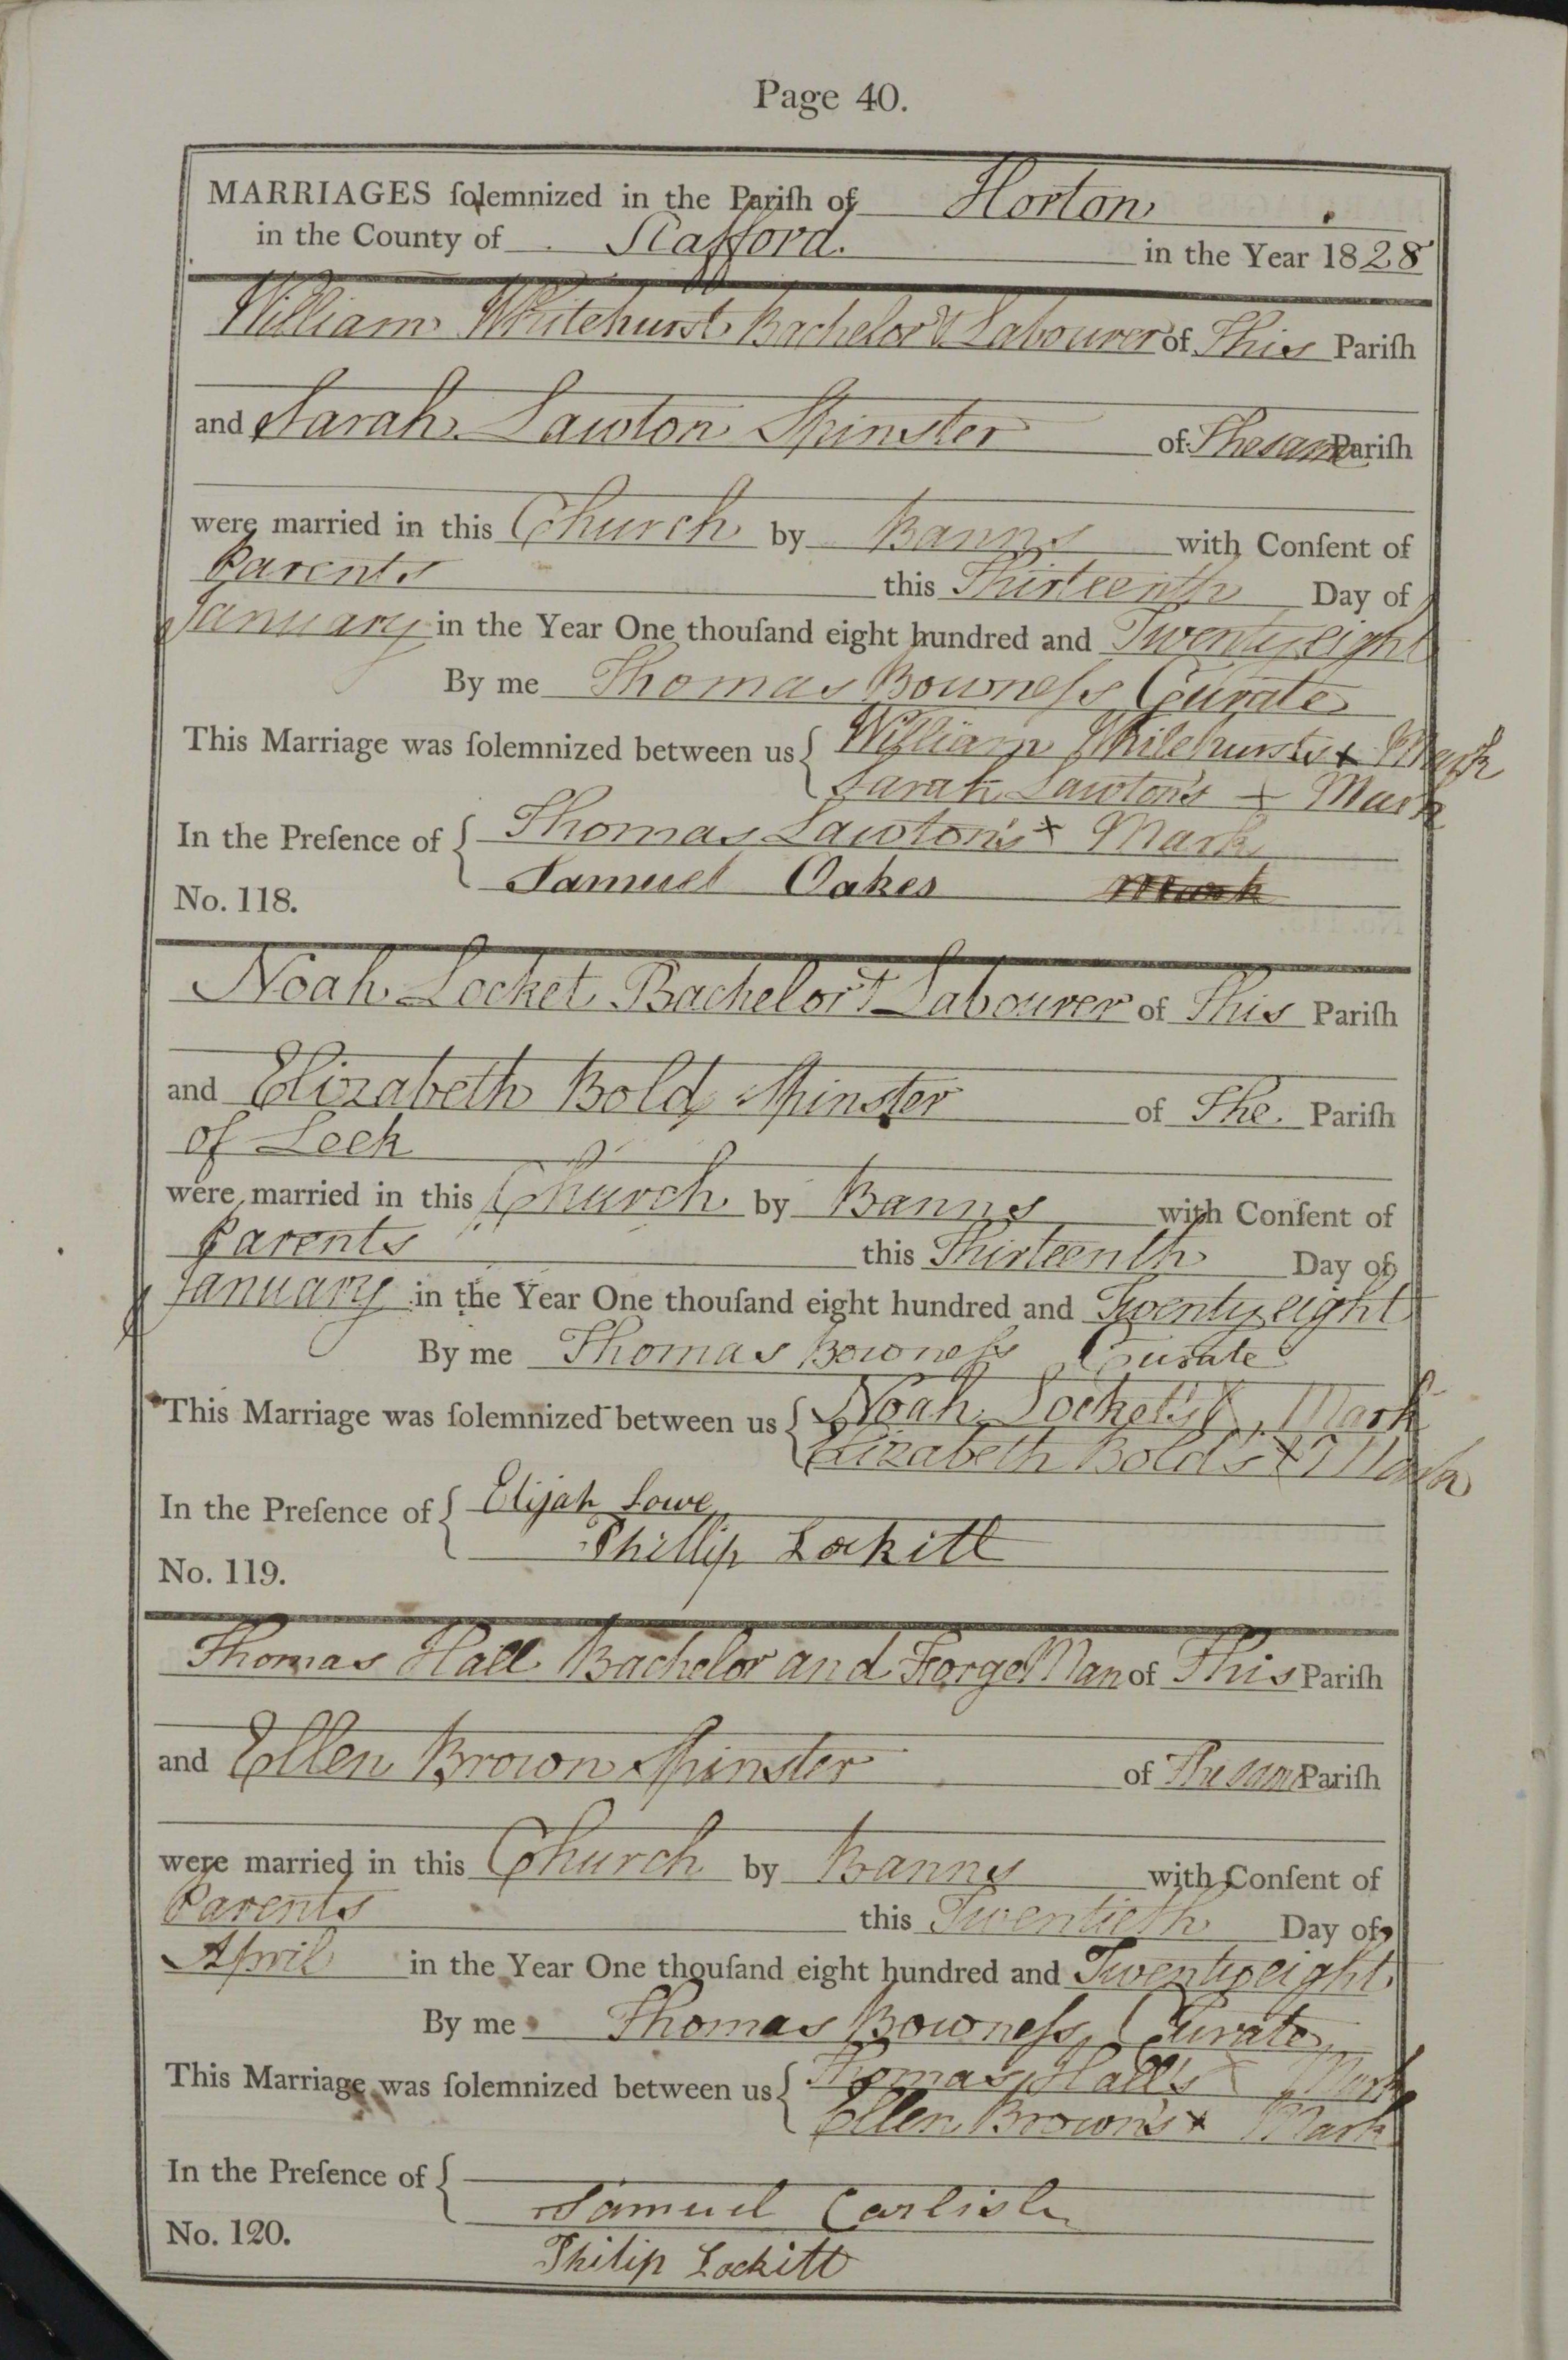 Page 40.
MARRIAGES ſolemnized in the Pariſh of Horton
in the County of Stafford. in the Year 1828
William Whitehurst Bachelor & Labourer of This Pariſh
and Sarah Lawton Spinster of The same Pariſh
were married in this Church by Banns with Conſent of
Parents this Thirteenth Day of
January in the Year One thouſand eight hundred and Twenty eight
By me Thomas Bowneſs Curate
This Marriage was ſolemnized between us { William Whitehurst's x Mark
Sarah Lawton's x Mark
In the Preſence of { Thomas Lawton's x Mark
Samuel Oakes Mark
No. 118.
Noah Locket Bachelor & Labourer of This Pariſh
and Elizabeth Bold Spinster of The Pariſh
of Leek
were married in this Church by Banns with Conſent of
Parents this Thirteenth Day of
January in the Year One thouſand eight hundred and Twenty eight
By me Thomas Bowneſs Curate
This Marriage was ſolemnized between us { Noah Locket's X Mark
Elizabeth Bold's x Mark
In the Preſence of { Elijah Lowe
Phillip Lockitt
No. 119.
Thomas Hall Bachelor and Forge Man of This Pariſh
and Ellen Brown Spinster of The same Pariſh
were married in this Church by Banns with Conſent of
Parents this Twentieth Day of
April in the Year One thouſand eight hundred and Twenty eight
By me Thomas Bowneſs Curate
This Marriage was ſolemnized between us { Thomas Hall's x Mark
Ellen Brown's x Mark
In the Preſence of {
Samuel Carlisle
No. 120.
Philip Lockitt